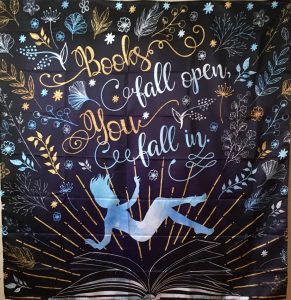 Books
fall open,
You
fall in.